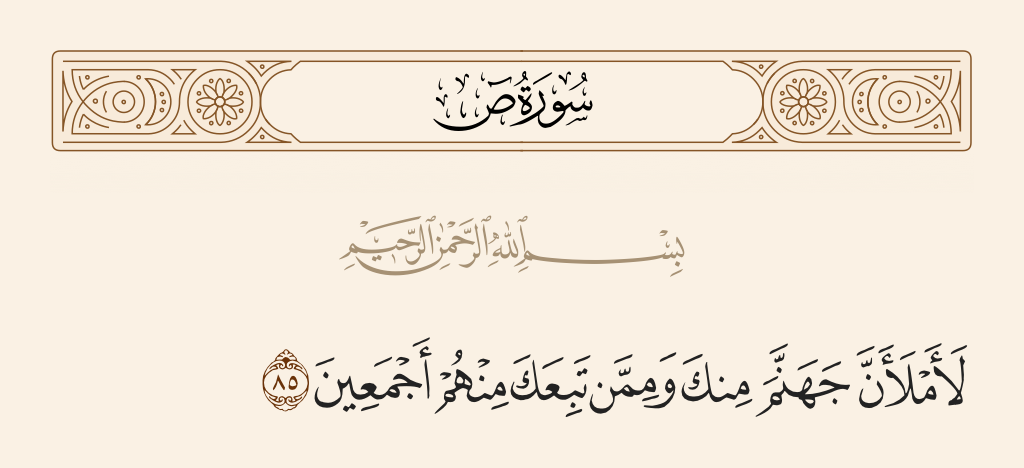 سُورَةُ صٓ
بِسْمِ ٱللَّهِ ٱلرَّحْمَٰنِ ٱلرَّحِيمِ
لَأَمْلَأَنَّ جَهَنَّمَ مِنكَ وَمِمَّن تَبِعَكَ مِنْهُمْ أَجْمَعِينَ ٨٥